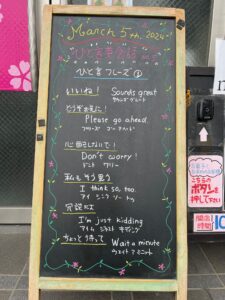 March 5th, 2024
ひとこと英会話
ひとことフレーズ①
いいね! Sounds great
サウンズ グレート
どうぞお先に!
Please go ahead.
プリーズ ゴー アヘッド
心配しないで!
Don't worry!
ドント ウリー
私もそう思う
I think so, too.
アイ シンク ソー トゥ
冗談だよ
I'm just kidding
アイム ジャスト キディング
ちょっと待って
Wait a minute
ウェイト ア ミニット
こちらの
ボタンを
押して下さい
開店
時間